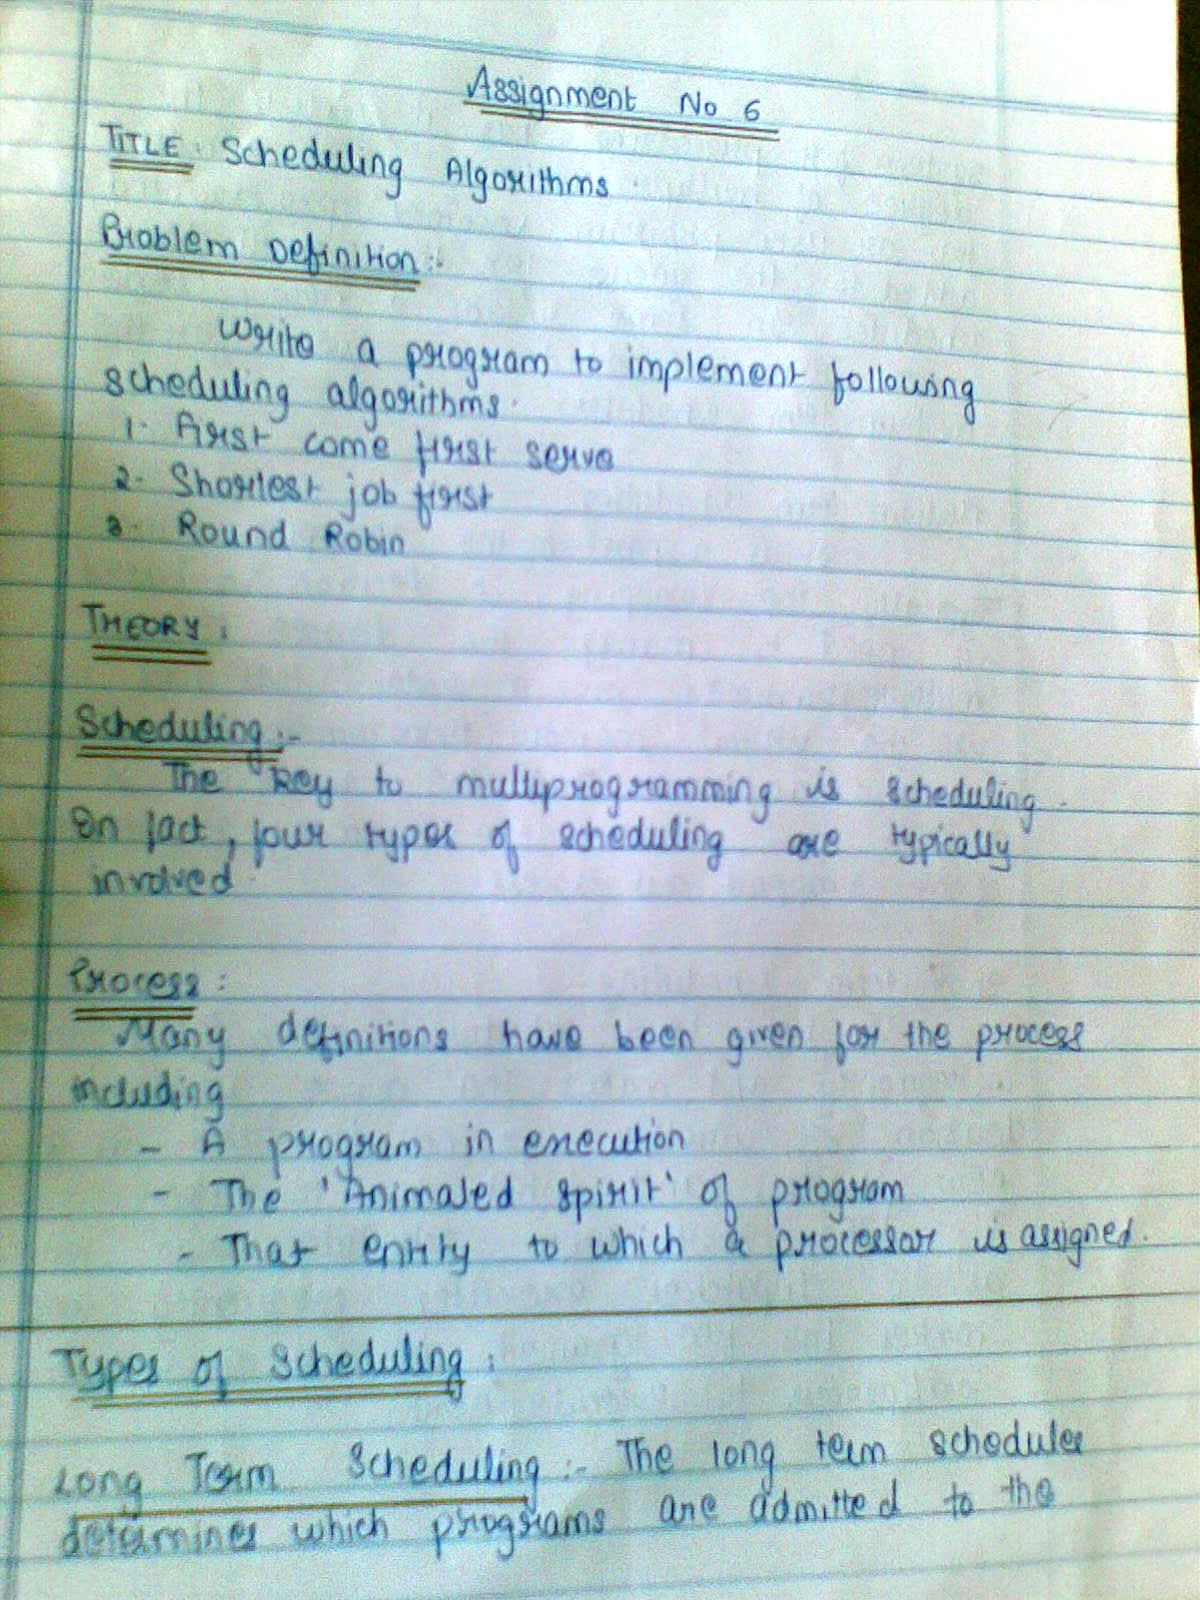 Assignment No 6
TITLE: Scheduling Algorithms
Problem Definition:-
Write a program to implement following
scheduling algorithms.
1. First come first serve
2. Shortest job first
3. Round Robin
THEORY:
Scheduling:-
The key to multiprogramming is scheduling.
In fact, four types of scheduling are typically
involved.
Process:
Many definitions have been given for the process
including
- A program in execution
- The 'Animated spirit' of program
- That entity to which a processor is assigned.
Types of Scheduling:
Long Term Scheduling:- The long term scheduler
determines which programs are admitted to the